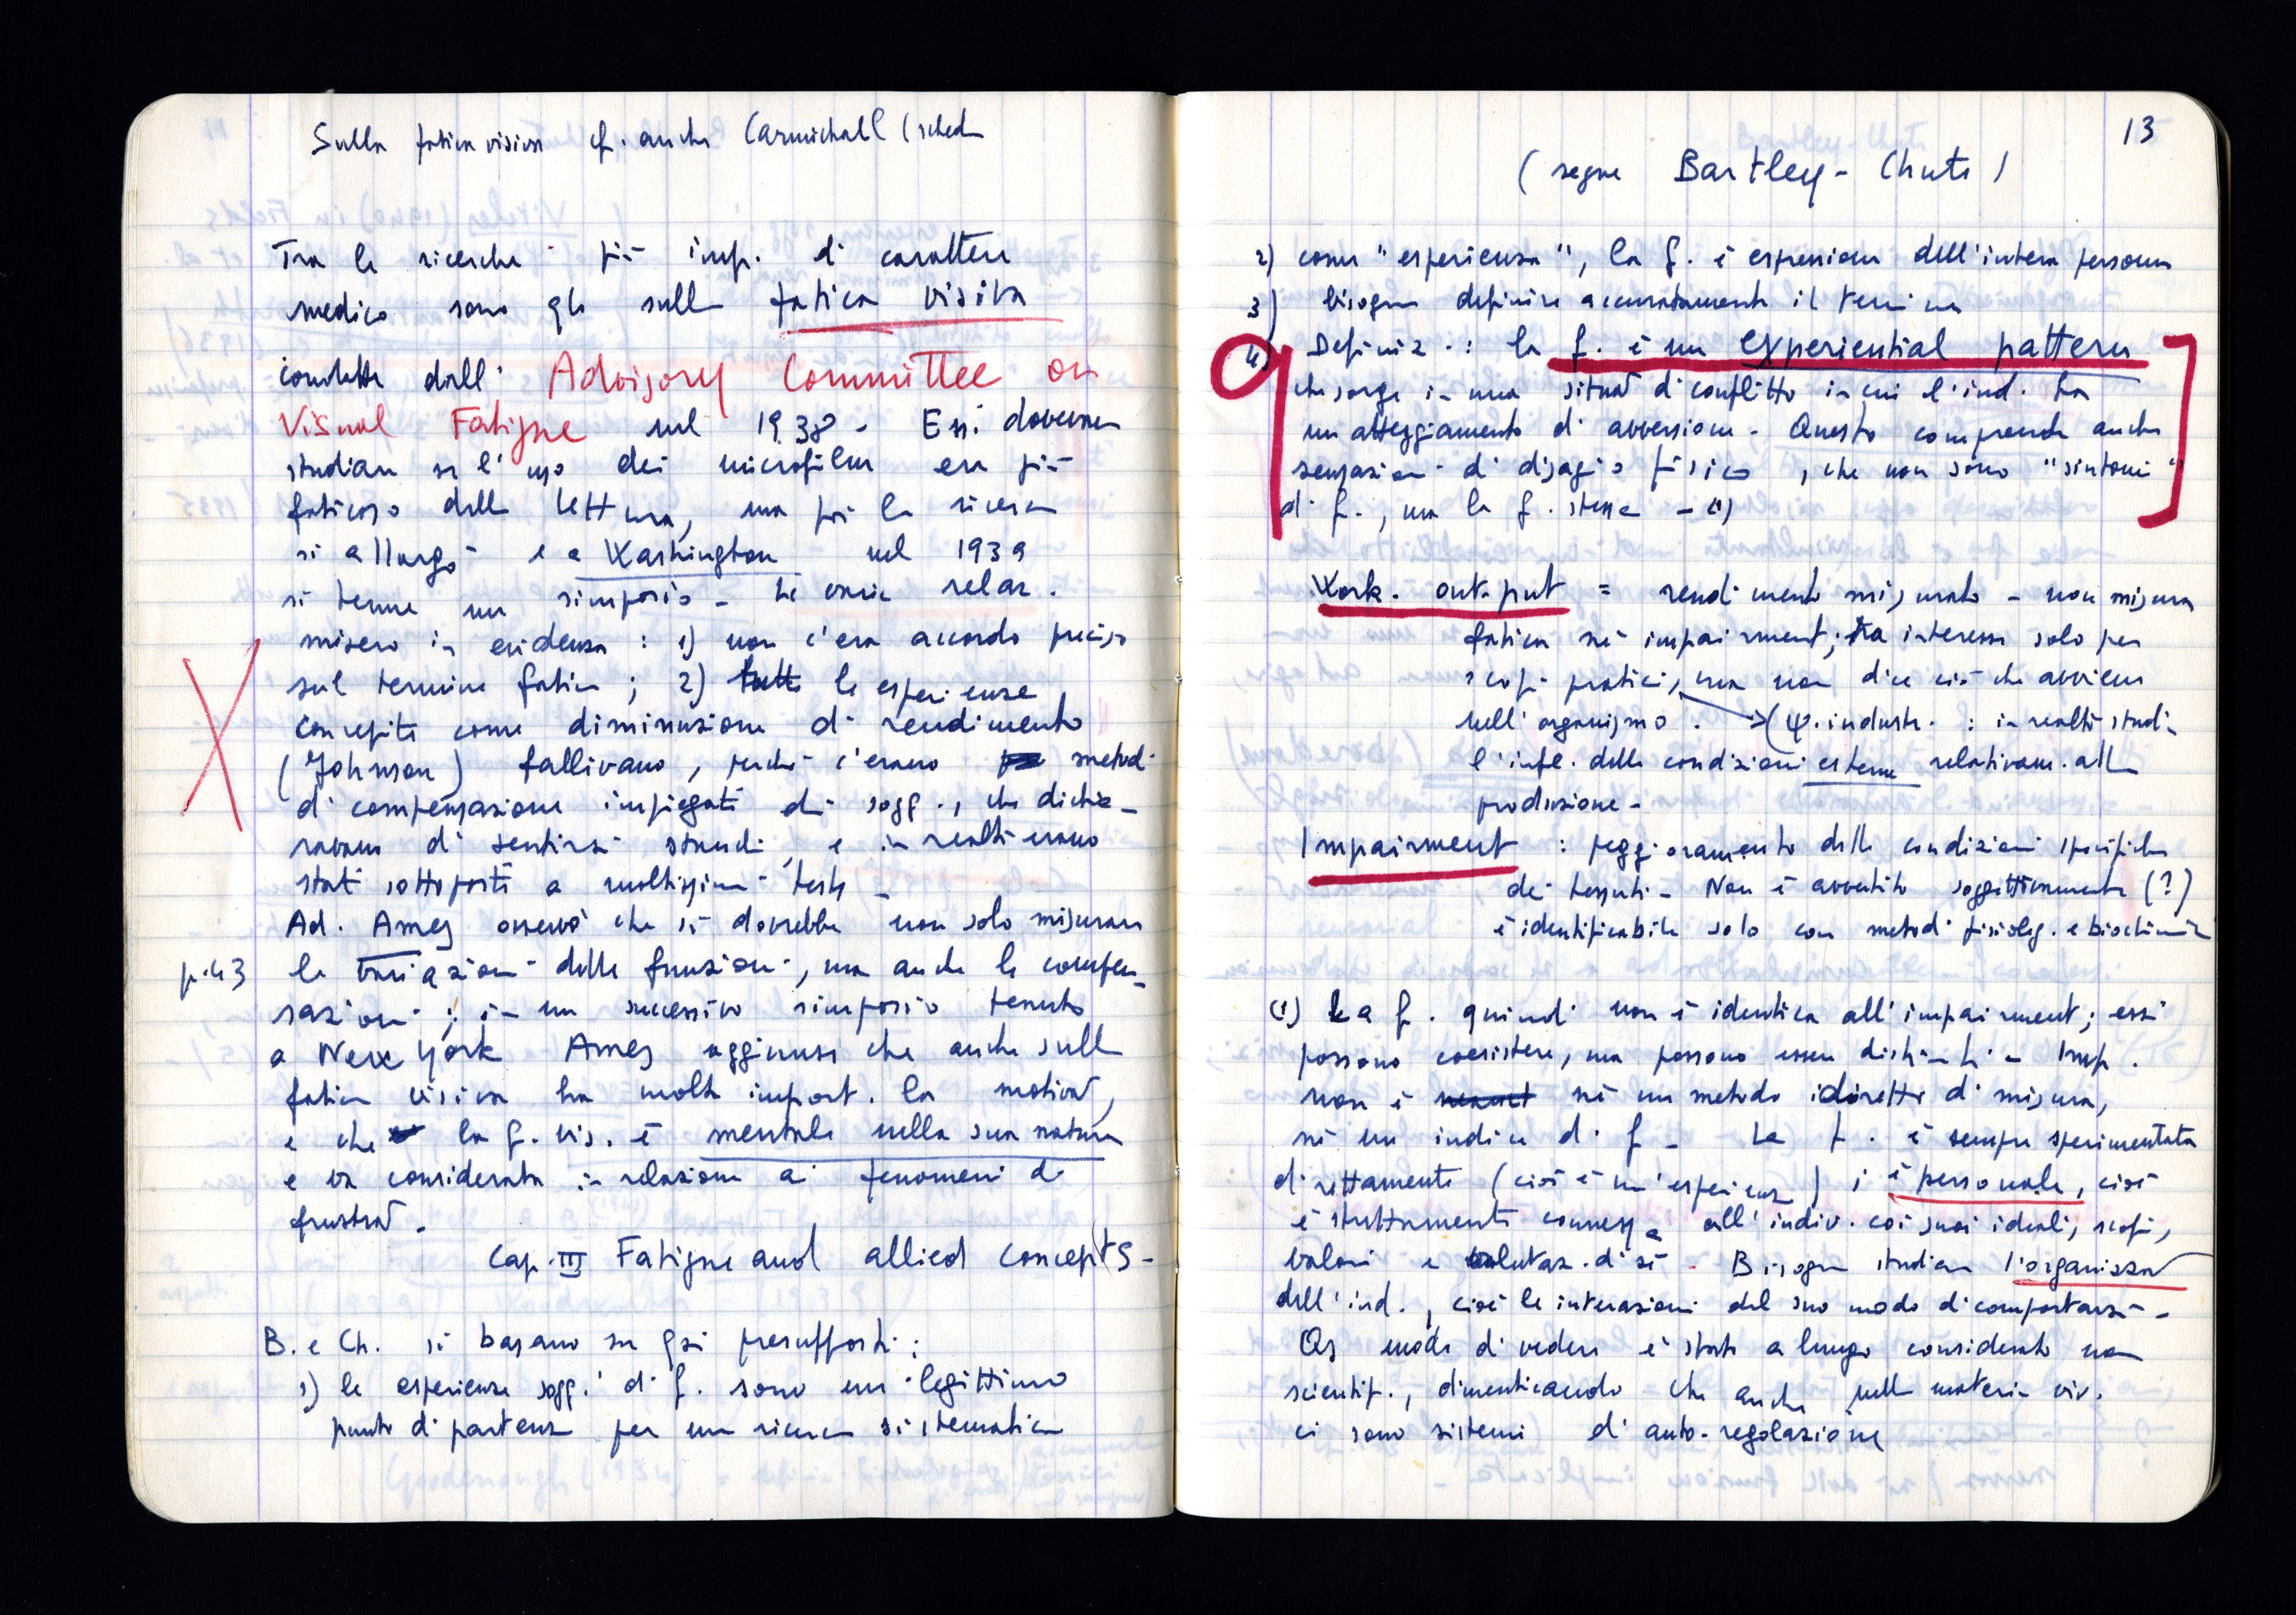 Sulla fatica visiva cf. anche Carmichall (scheda
Tra le ricerche più imp. di carattere
medico sono qle sulla fatica visiva
condotte dall' Advisory Committee on
Visual Fatigue nel 1938 - Essi dovevano
studiare se l'uso dei microfilm era più
faticoso della lettura, ma poi la ricerca
si allargò e a Washington nel 1939
si tenne un simposio - Le varie relaz.
misero in evidenza : 1) non c'era accordo preciso
sul termine fatica ; 2) tutte le esperienze
concepite come diminuzione di rendimento
(Johnson) fallivano, perché c'erano metodi
di compensazione impiegati dai sogg., che dichia-
ravano di sentirsi stanchi, e in realtà erano
stati sottoposti a moltissimi tests -
Ad. Ames osservò che si dovrebbe non solo misurare
p. 43 le variazioni delle funzioni, ma anche le compen-
sazioni ; in un successivo simposio tenuto
a New York Ames aggiunse che anche sulla
fatica visiva ha molta import. la motivaz,
e che la f. vis. è mentale nella sua natura
e va considerata in relazione ai fenomeni di
frustraz.
Cap. III Fatigue and allied concepts -
B. e Ch. si basano su qsi presupposti :
1) le esperienze sogg.i di f. sono un legittimo
punto di partenza per una ricerca sistematica
13
(segue Bartley - Chute)
2) come "esperienza", la f. è espressione dell'intera persona
3) bisogna definire accuratamente il termine
4) Definiz. : la f. è un experiential pattern
che sorge in una situaz di conflitto in cui l'ind. ha
un atteggiamento di avversione - Questo comprende anche
sensazioni di disagio fisico, che non sono "sintomi"
di f., ma la f. stessa - (1)
Work. out-put = rendimento misurato - non misura
fatica né impairment; ha interesse solo per
scopi pratici, ma non dice ciò che avviene
nell'organismo . → (ψ. industr. : in realtà studia
l'infl. delle condizioni esterne relativam. alla
produzione -
Impairment : peggioramento delle condizioni specifiche
dei tessuti - Non è avvertito soggettivamente (?)
è identificabile solo con metodi fisiolog. e biochimici
(1) La f. quindi non è identica all'impairment; essi
possono coesistere, ma possono essere distinti - Imp.
non è né un metodo idiretto di misura,
né un indice di f - La f. è sempre sperimentata
direttamente (cioè è un'esperienza) ; è personale, cioè
è strettamente connessa all'indiv. coi suoi ideali, scopi,
valori e valutaz. di sé - Bisogna studiare l'organizzaz
dell'ind., cioè le interazioni del suo modo di comportarsi -
Qs modo di vedere è stato a lungo considerato non
scientif., dimenticando che anche nella materia viv.
ci sono sistemi di auto-regolazione